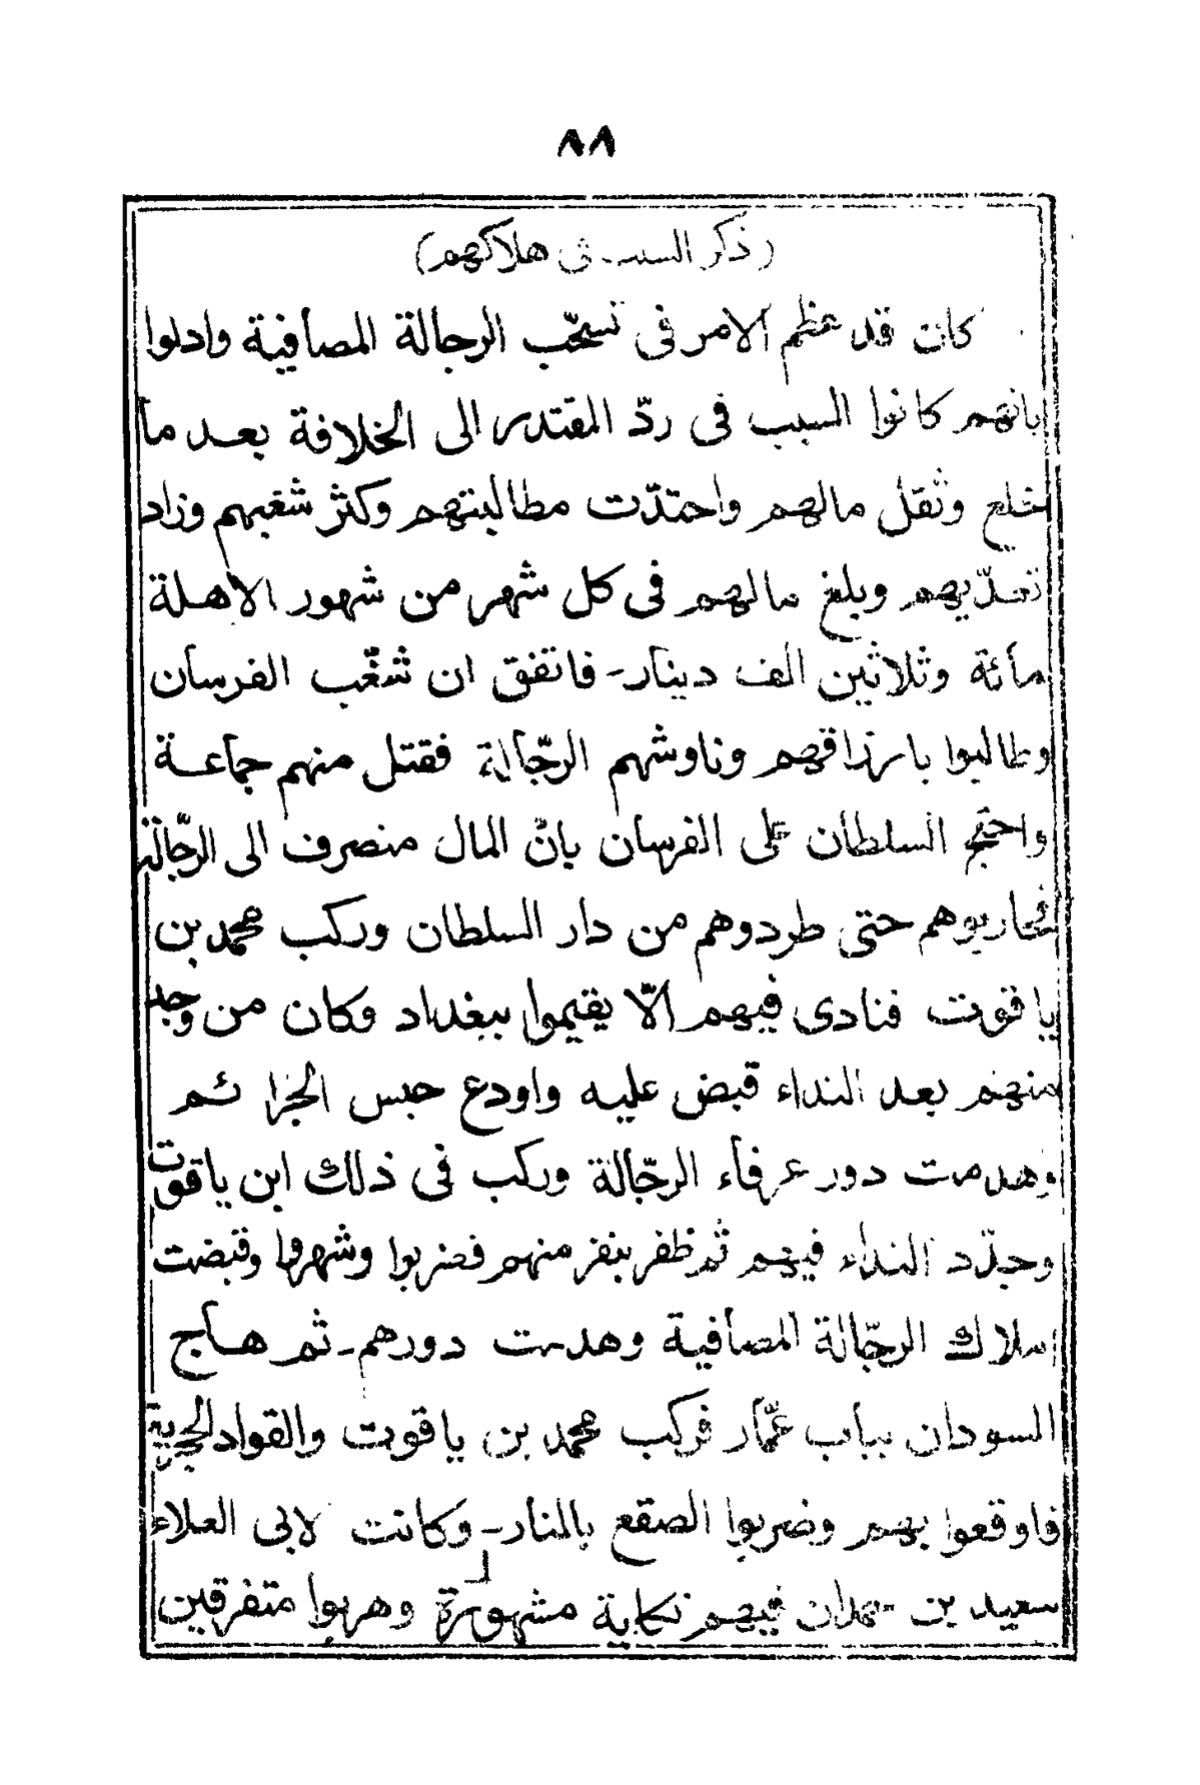 ٨٨
(ذكر السبب فى هلاكهم)
كان قد عظم الامر فى تسحّب الرجالة المصافية وادلوا
بانهم كانوا السبب فى ردّ المقتدر الى الخلافة بعد ما
خلع وثقل مالهم واحتدّت مطالبتهم وكثر شغبهم وزاد
تعدّيهم وبلغ مالهم فى كل شهر من شهور الاهلة
مأئة وثلاثين الف دينار- فاتفق ان شغّب الفرسان
وطالبوا بارزاقهم وناوشهم الرجّالة فقتل منهم جماعة
واحتج السلطان على الفرسان بانّ المال منصرف الى الرجّالة
فحاربوهم حتى طردوهم من دار السلطان وركب محمد بن
ياقوت فنادى فيهم الّا يقيموا ببغداد وكان من وجد
منهم بعد النداء قبض عليه واودع حبس الجرائم
وهدمت دور عرفاء الرجّالة وركب فى ذلك ابن ياقوت
وجدّد النداء فيهم ثم ظفر بنفر منهم فضربوا وشهروا وقبضت
املاك الرجّالة المصافية وهدمت دورهم- ثم هاج
السودان بباب عمّار فركب محمد بن ياقوت والقواد الحجرية
فاوقعوا بهم وضربوا الصقع بالنار- وكانت لابى العلاء
سعيد بن حمدان فيهم نكاية مشهورة وهربوا متفرقين